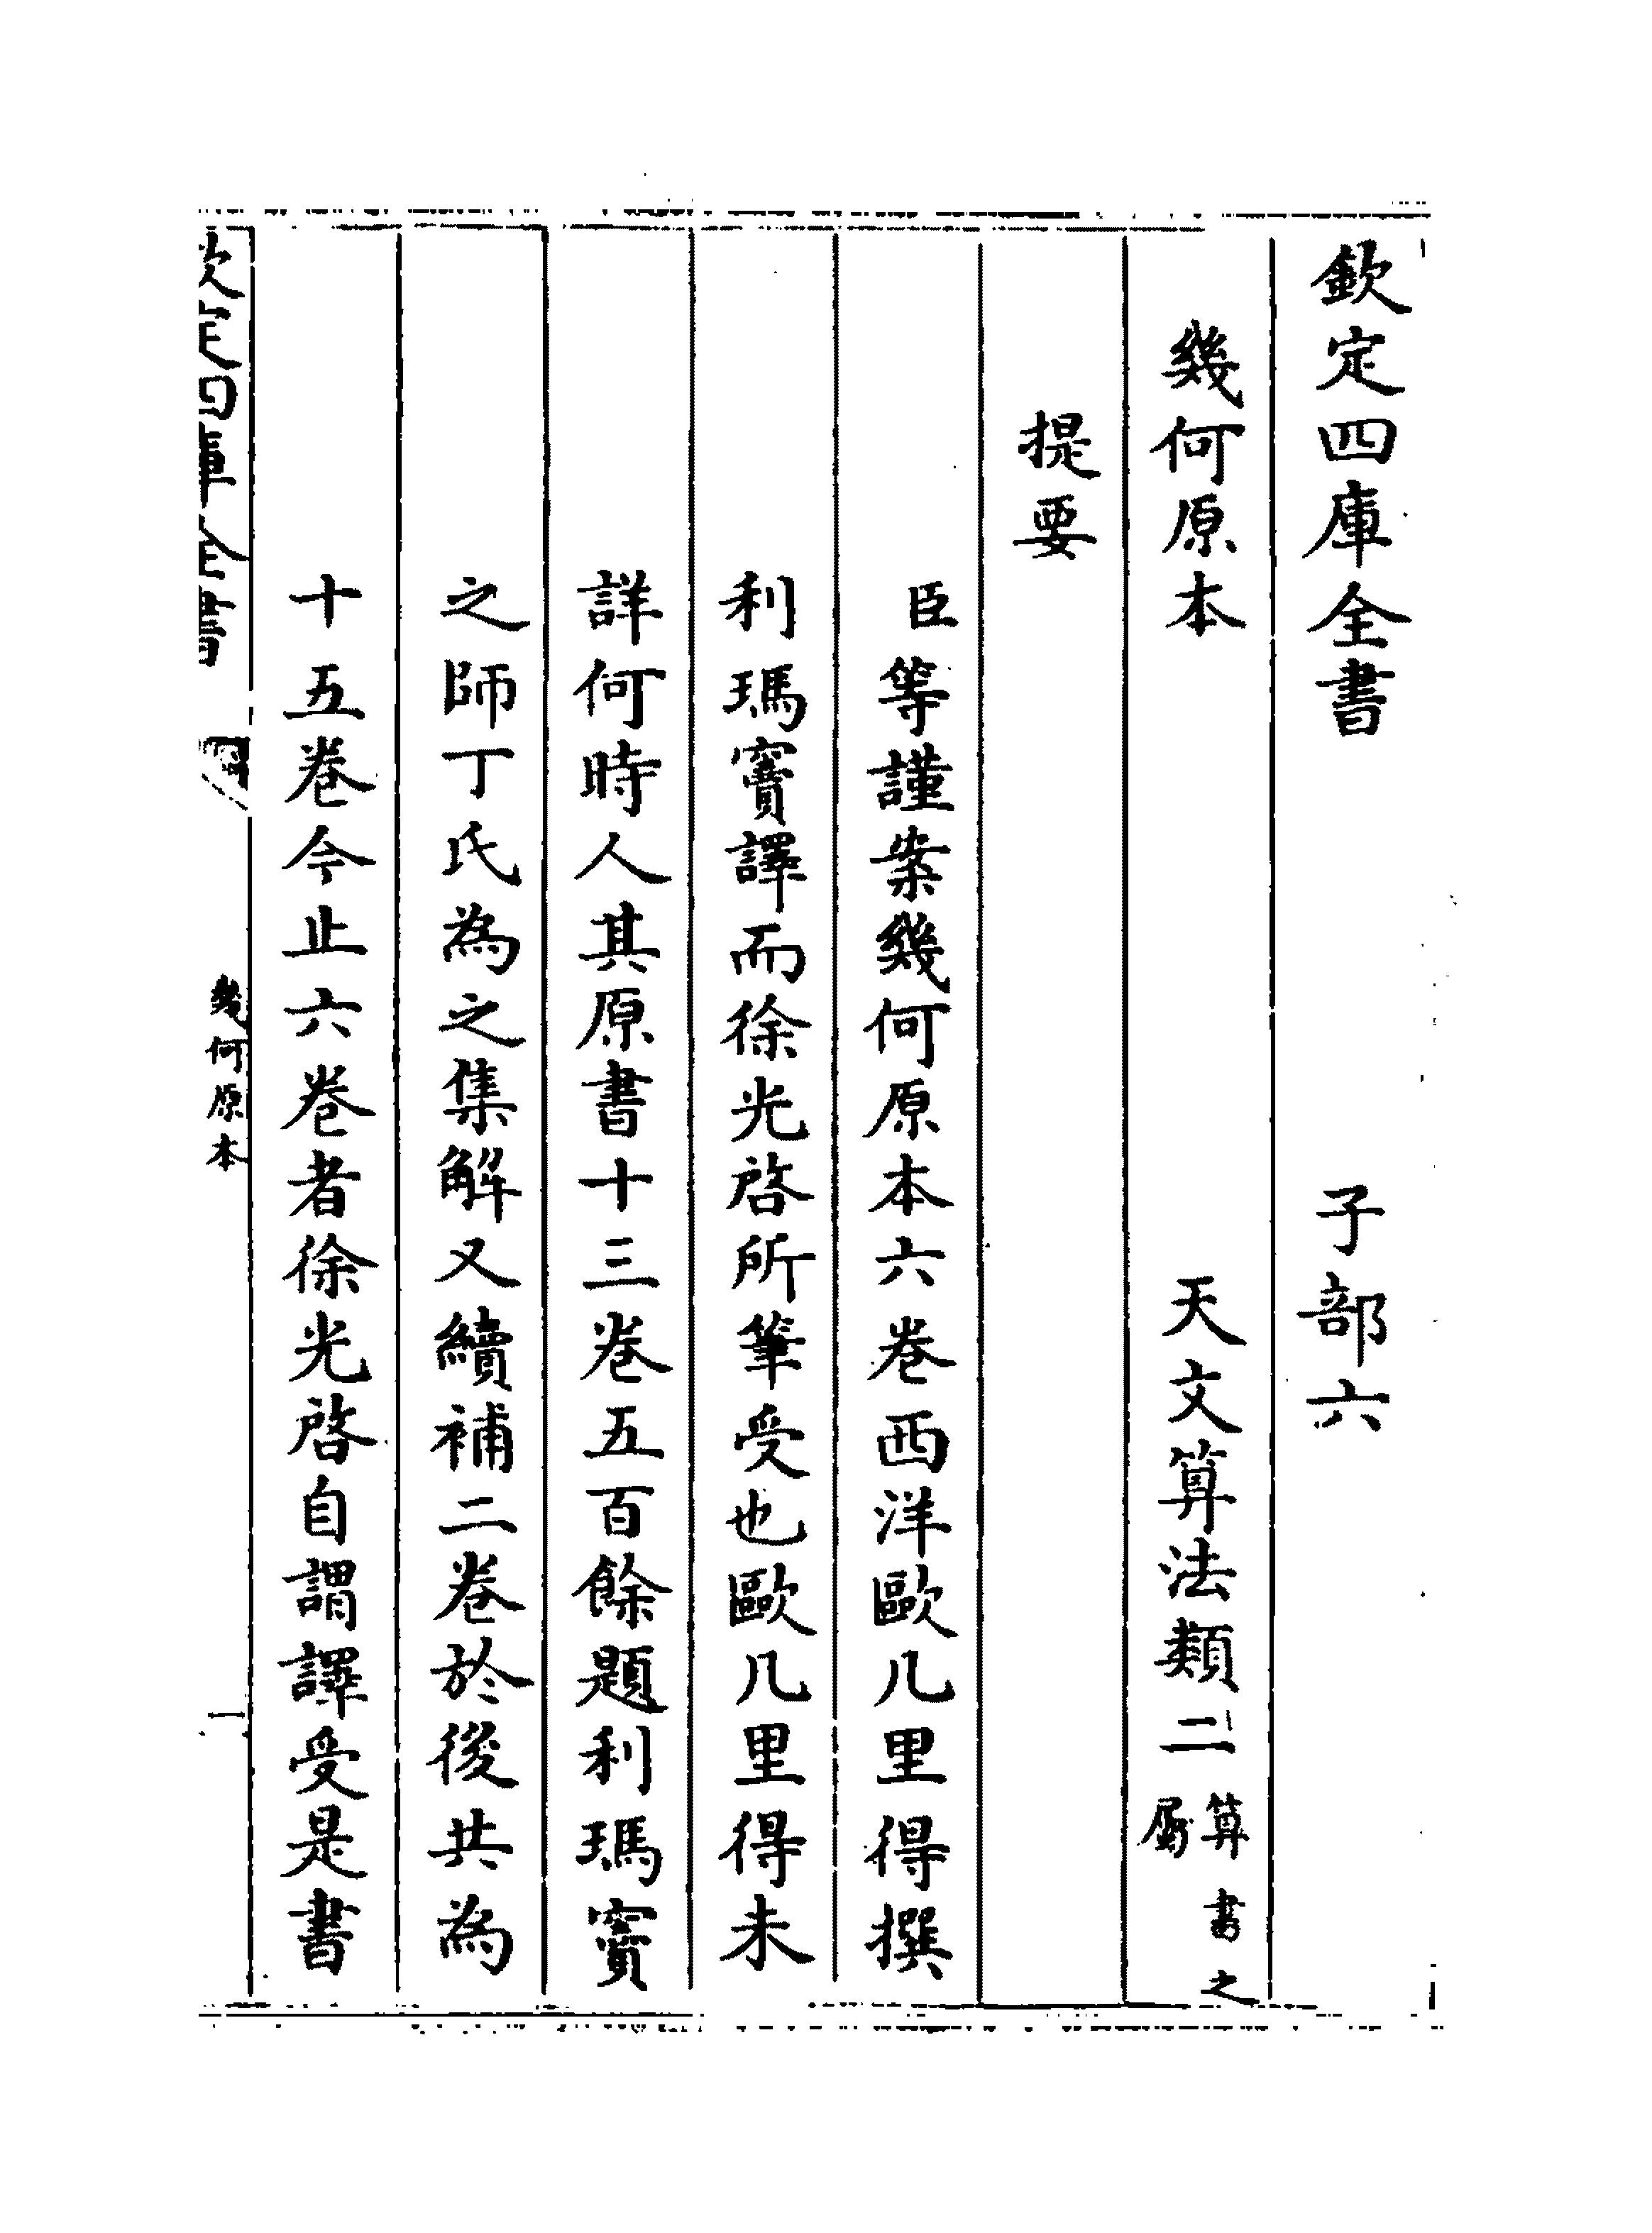 欽定四庫全書 子部六
幾何原本 天文算法類二 算書之
屬
提要
臣等謹案幾何原本六卷西洋歐几里得撰
利瑪竇譯而徐光啓所筆受也歐几里得未
詳何時人其原書十三卷五百餘題利瑪竇
之師丁氏為之集解又續補二卷於後共為
十五卷今止六卷者徐光啓自謂譯受是書
欽定四庫全書 幾何原本 一